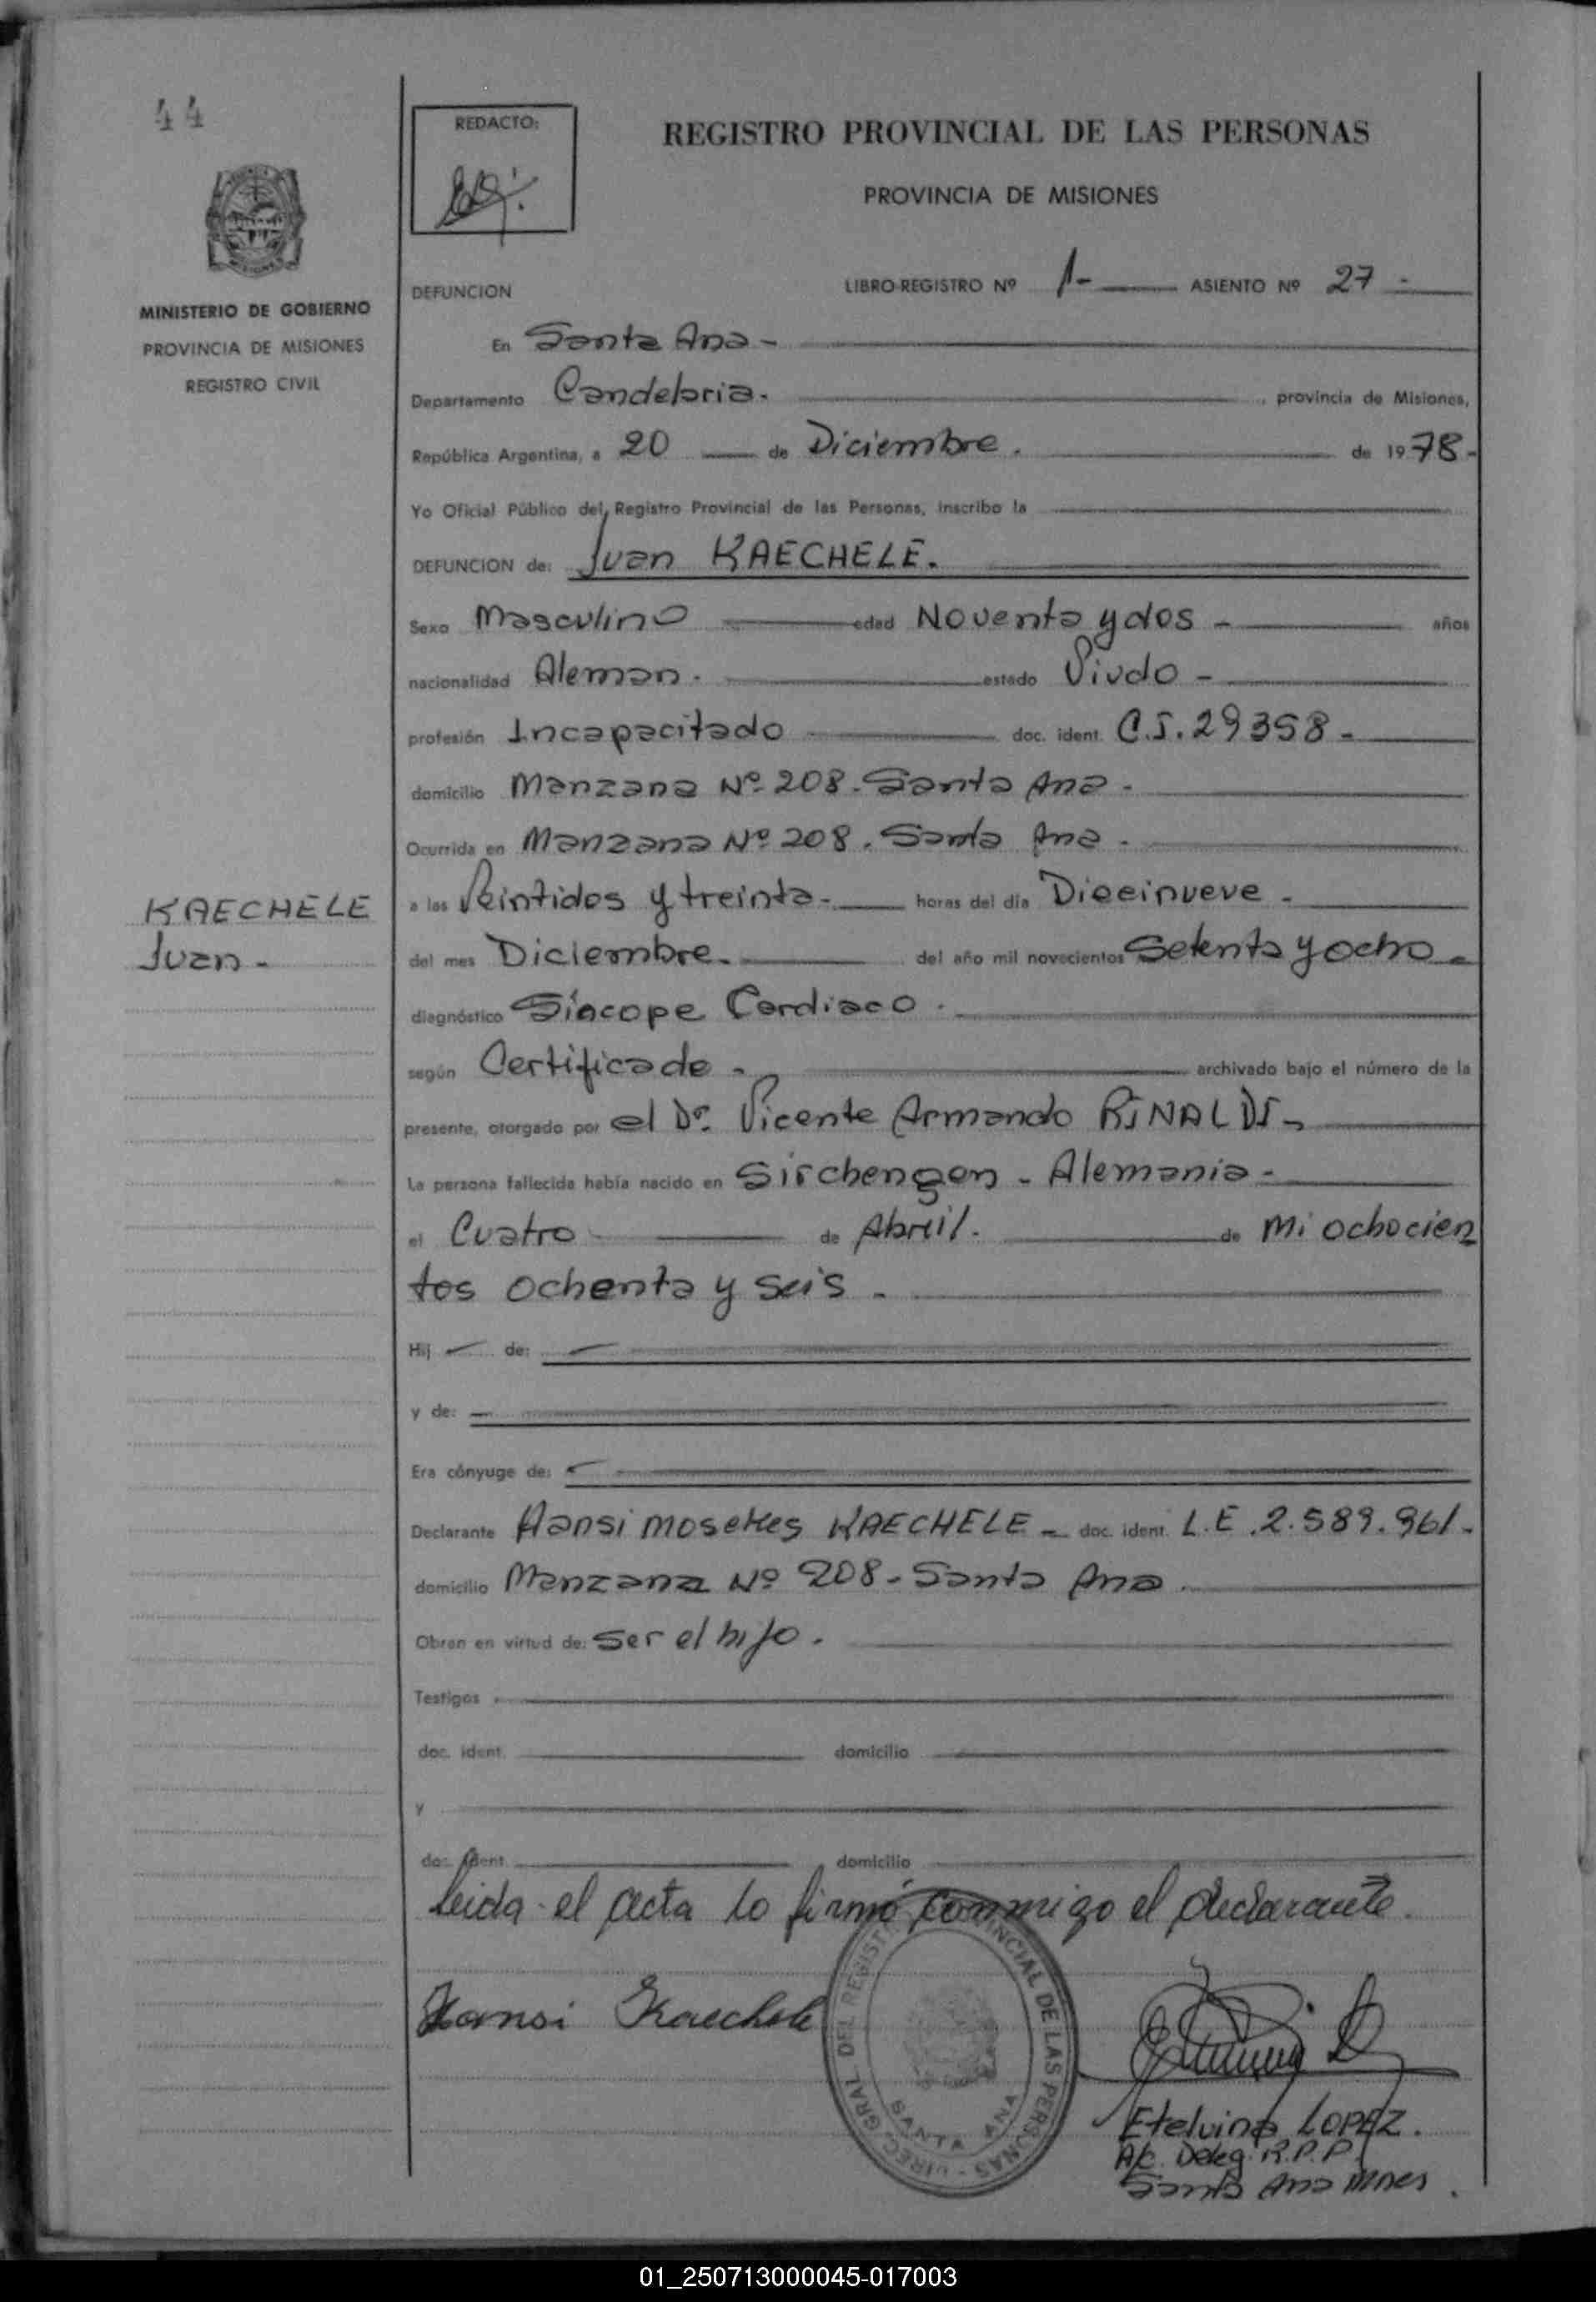 44
REDACTO:
REGISTRO PROVINCIAL DE LAS PERSONAS
PROVINCIA DE MISIONES
MINISTERIO DE GOBIERNO
PROVINCIA DE MISIONES
REGISTRO CIVIL
DEFUNCION LIBRO-REGISTRO Nº 1- ASIENTO Nº 27-
En Santa Ana-
Departamento Candelaria. , provincia de Misiones,
República Argentina, a 20 de Diciembre. de 1978-
Yo Oficial Público del Registro Provincial de las Personas, inscribo la
DEFUNCION de: Juan KAECHELE.
Sexo Masculino edad Noventa y dos - años
nacionalidad Aleman. estado Viudo -
profesión Incapacitado doc. ident. C.I. 29358-
domicilio Manzana Nº 208-Santa Ana-
Ocurrida en Manzana Nº 208. Santa Ana-
a las Veintidos y treinta- horas del día Diecinueve-
KAECHELE
Juan-
del mes Diciembre. del año mil novecientos Setenta y ocho-
diagnóstico Síncope Cardiaco.
según Certificado- archivado bajo el número de la
presente, otorgado por el Dr. Vicente Armando RINALDI-
La persona fallecida había nacido en Sirchengen - Alemania-
el Cuatro de Abril. de Mi ochocien
tos ochenta y seis.
Hij de:
y de:
Era cónyuge de:
Declarante Hansi KAECHELE - doc. ident. L.E. 2.589.961-
domicilio Manzana Nº 208-Santa Ana.
Obran en virtud de: Ser el hijo.
Testigos
doc. ident. domicilio
y
doc. ident. domicilio
Leida el acta lo firmó conmigo el declarante.
Hansi Kaechele
DIREC. GRAL. DEL REGISTRO PROVINCIAL DE LAS PERSONAS -
SANTA ANA
Etelvina LOPEZ.
A/c. Deleg. R.P.P.
Santa Ana Mnes.
01_250713000045-017003